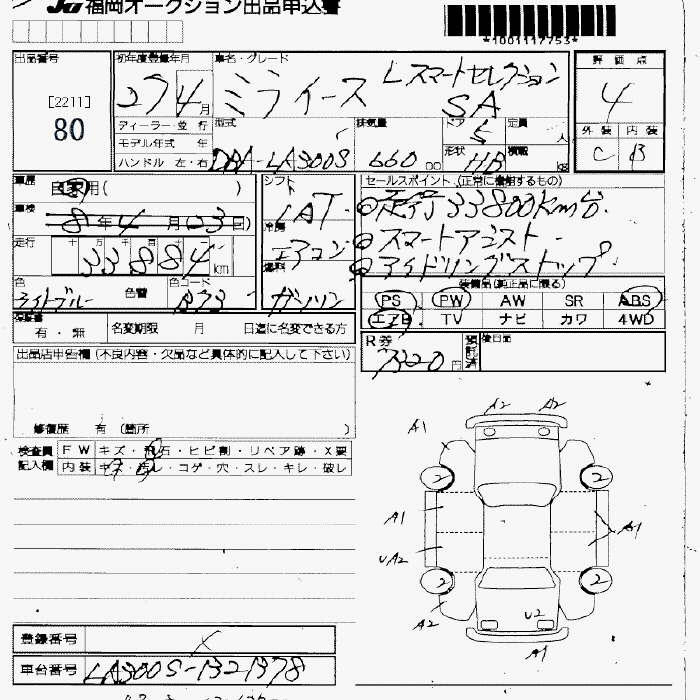 JU福岡オークション出品申込書
*1001117753*
出品番号
[2211]
80
初年度登録年月
27 4月
車名・グレード
ミライース LスマートセレクションSA
評価点
4
外装 内装
C B
ディーラー・並行
モデル年式 年
ハンドル 左・右
型式
DBA-LA300S
排気量
660 cc
ドア
5
形状
HB
定員
人
積載
kg
車歴
自家用( )
車検
8年4月(03回)
走行
33884km
色
ライトブルー
色替
色コード
B73
シフト
LAT
冷房
エアコン
燃料
ガソリン
セールスポイント (正常に機能するもの)
◎走行33800Km台
◎スマートアシスト
◎アイドリングストップ
装備品(純正品に限る)
PS PW AW SR ABS
エアB TV ナビ カワ 4WD
保証書
有・無
名変期限 月 日迄に名変できる方
R券
7320円
預託済
後日品
出品店申告欄(不良内容・欠品など具体的に記入して下さい)
修復歴 有 (箇所 )
検査員
記入欄
FW キズ・飛石・ヒビ割・リペア跡・X要
内装 キズ・汚レ・コゲ・穴・スレ・キレ・破レ
A2 A2
A1
2 2
A1 A1
UA2
2 2
A2 U2
A1
登録番号
車台番号 LA300S-1321378